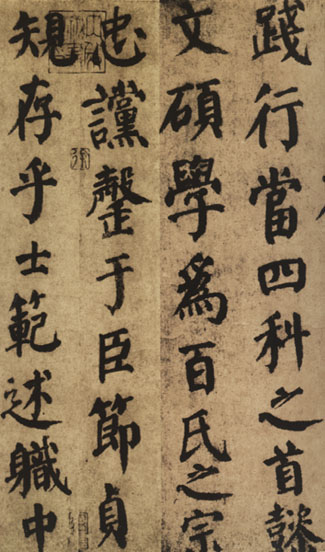 踐行當四科之首懿
文碩學爲百氏之宗
忠讜罄于臣節貞
䂓存乎士範述職中